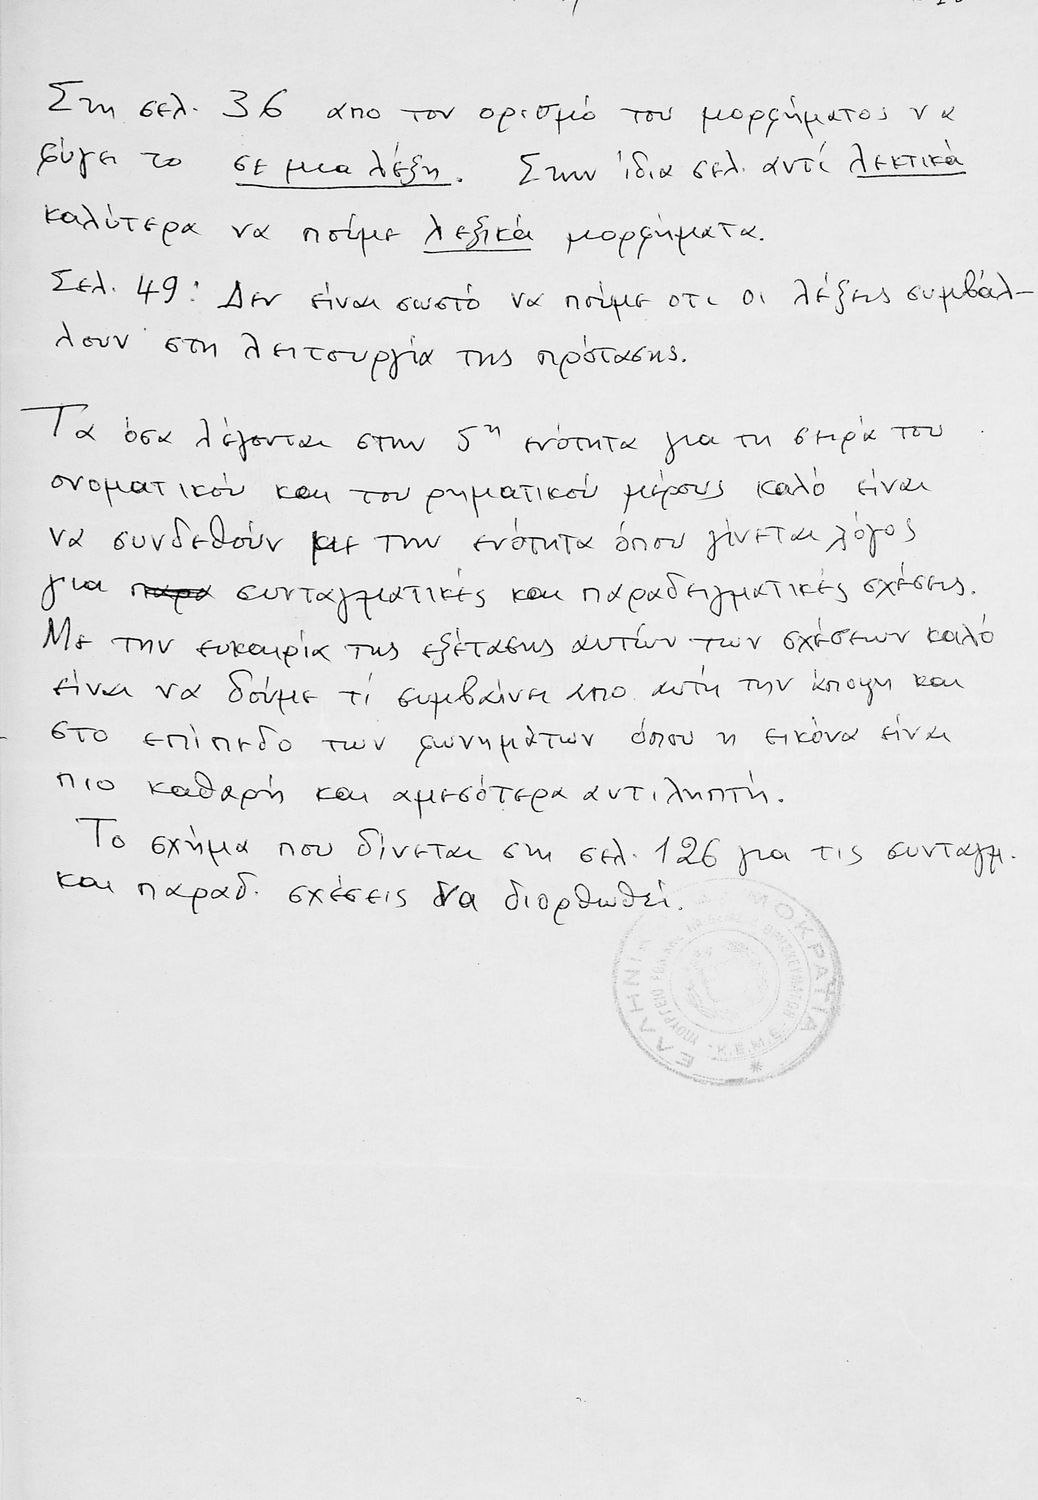 Στη σελ. 36 απο τον ορισμό του μορφήματος να
φύγει το σε μια λέξη. Στην ίδια σελ. αντί λεκτικά
καλύτερα να πούμε λεξικά μορφήματα.
Σελ. 49: Δεν είναι σωστό να πούμε οτι οι λέξεις συμβάλ-
λουν στη λειτουργία της πρότασης.
Τα όσα λέγονται στην 5η ενότητα για τη σειρά του
ονοματικού και του ρηματικού μέρους καλό είναι
να συνδεθούν με την ενότητα όπου γίνεται λόγος
για παρα συνταγματικές και παραδειγματικές σχέσεις.
Με την ευκαιρία της εξέτασης αυτών των σχέσεων καλό
είναι να δούμε τί συμβαίνει απο αυτή την άποψη και
στο επίπεδο των φωνημάτων όπου η εικόνα είναι
πιο καθαρή και αμεσότερα αντιληπτή.
Το σχήμα που δίνεται στη σελ. 126 για τις συνταγμ.
και παραδ. σχέσεις να διορθωθεί.
ΕΛΛΗΝΙΚΗ ΔΗΜΟΚΡΑΤΙΑ
ΥΠΟΥΡΓΕΙΟ ΕΘΝΙΚΗΣ ΠΑΙΔΕΙΑΣ ΘΡΗΣΚΕΥΜΑΤΩΝ
Κ.Ε.Μ.Ε.